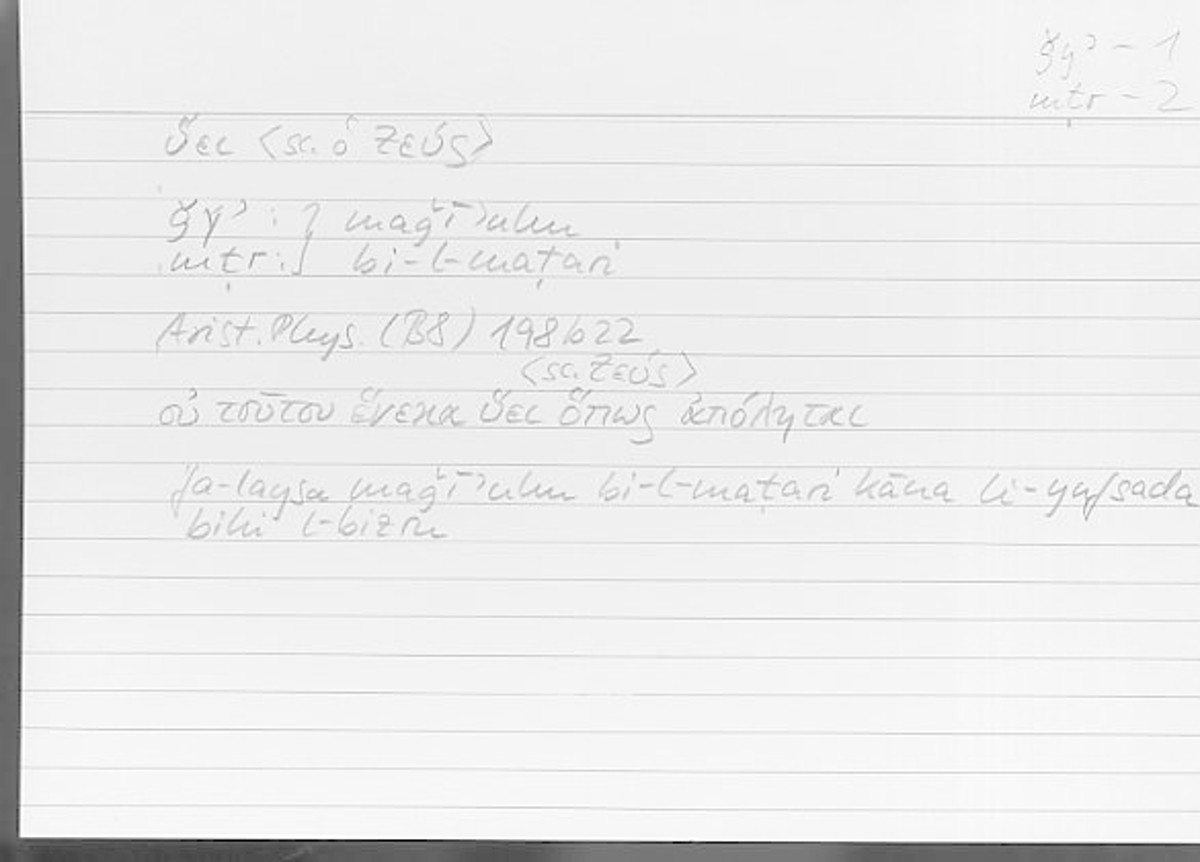 ǧyʾ – 1
mṭr – 2
ὕει <sc. ὁ Ζεύς>
ǧyʾ : } maǧīʾuhu
mṭr : } bi-l-maṭari
Arist. Phys. (B8) 198b22
<sc. Ζεύς>
οὐ τούτου ἕνεκα ὕει ὅπως ἀπόληται
fa-laysa maǧīʾuhu bi-l-maṭari kāna li-yufsada
bihi l-bizru